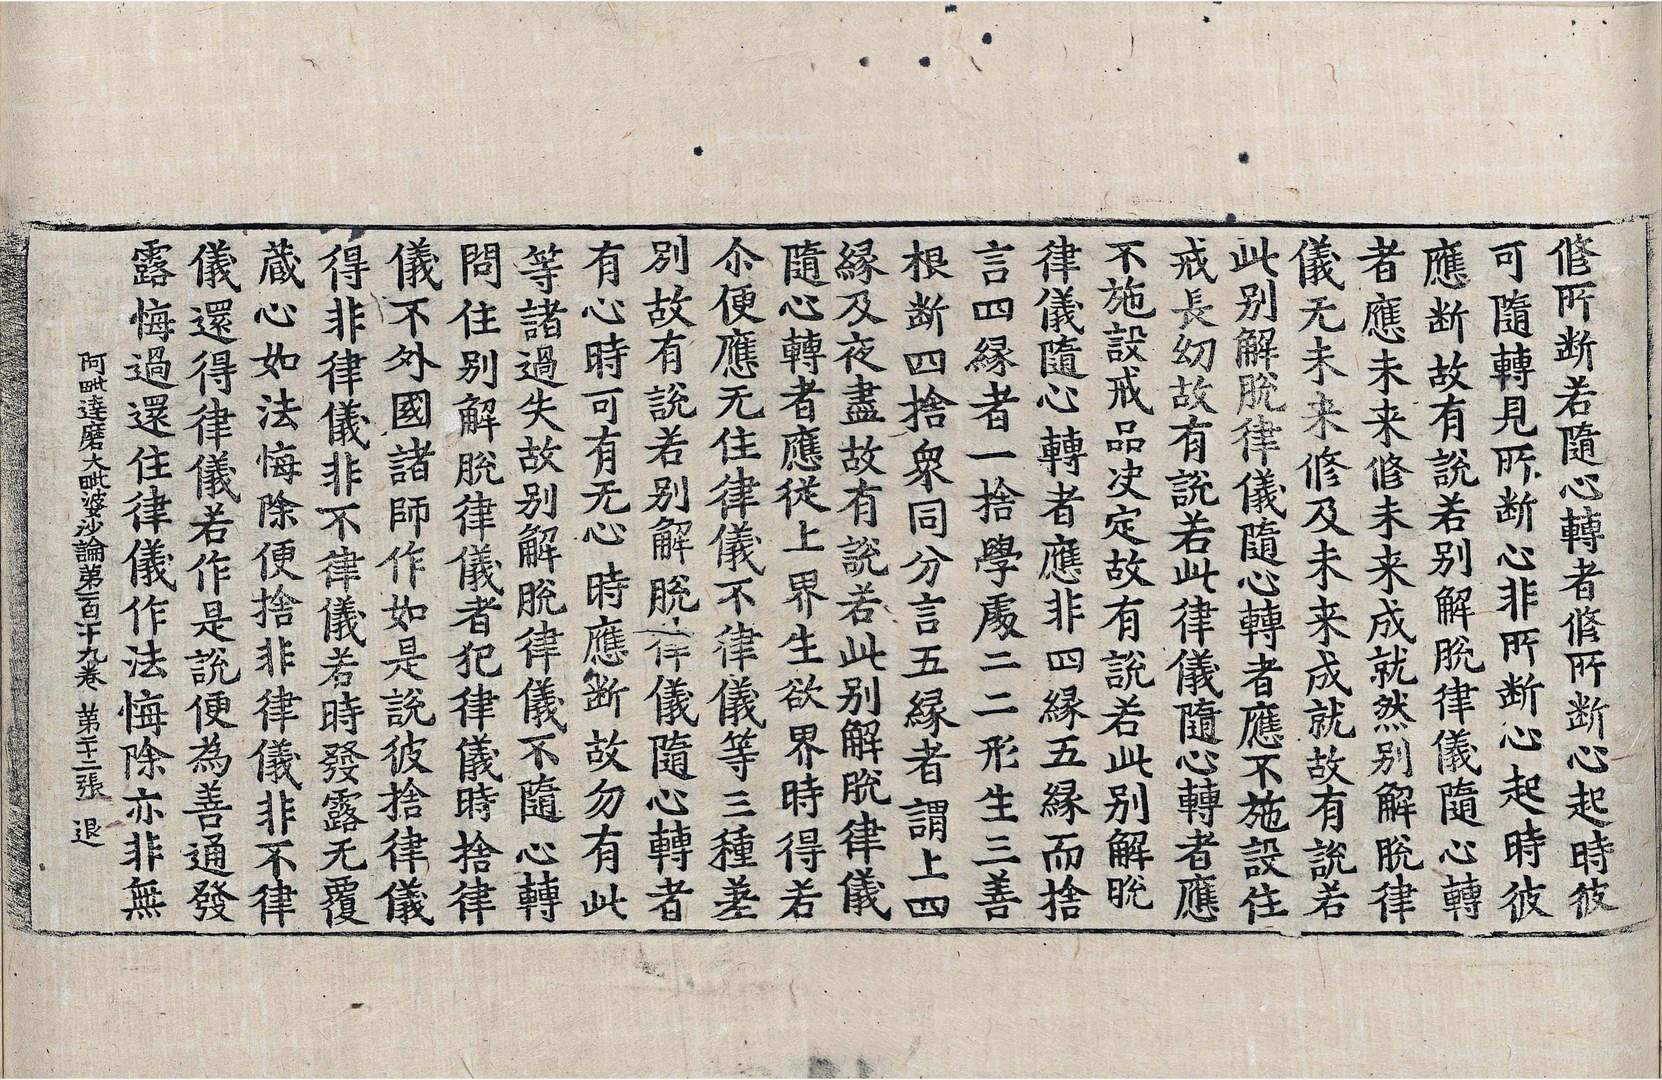 修所断若隨心轉者修所断心起時彼
可隨轉見所断心非所断心起時彼
應断故有說若别解脫律儀隨心轉
者應未来修未来成就然别解脫律
儀无未来修及未来成就故有說若
此别解脫律儀隨心轉者應不施設住
戒長幼故有說若此律儀隨心轉者應
不施設戒品决定故有說若此别解脫
律儀隨心轉者應非四縁五縁而捨
言四縁者一捨學䖏二二形生三善
根断四捨衆同分言五縁者謂上四
縁及夜盡故有說若此别解脫律儀
隨心轉者應從上界生欲界時得若
尒便應无住律儀不律儀等三種差
别故有說若别解脫律儀隨心轉者
有心時可有无心時應断故勿有此
等諸過失故别解脫律儀不隨心轉
問住别解脫律儀者犯律儀時捨律
儀不外國諸師作如是說彼捨律儀
得非律儀非不律儀若時發露无覆
蔵心如法悔除便捨非律儀非不律
儀還得律儀若作是說便為善通發
露悔過還住律儀作法悔除亦非無
阿毗達磨大毗婆沙論第一百十九卷 第二十二張 退